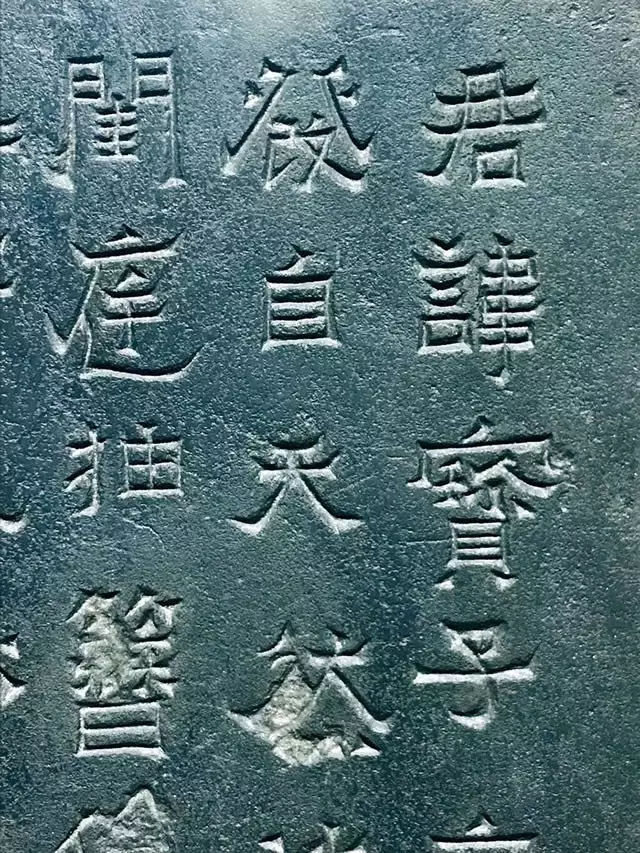 君諱寶子
發自天然
閨庭抽簪